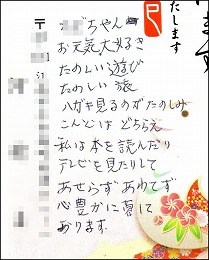 たします
〒
ちゃん
お元気大好き
たのしい遊び
たのしい旅
ハガキ見るのがたのしみ
こんどは どちらえ
私は本を読んだり
テレビを見たりして
あせらず あわてず
心豊かに
おります